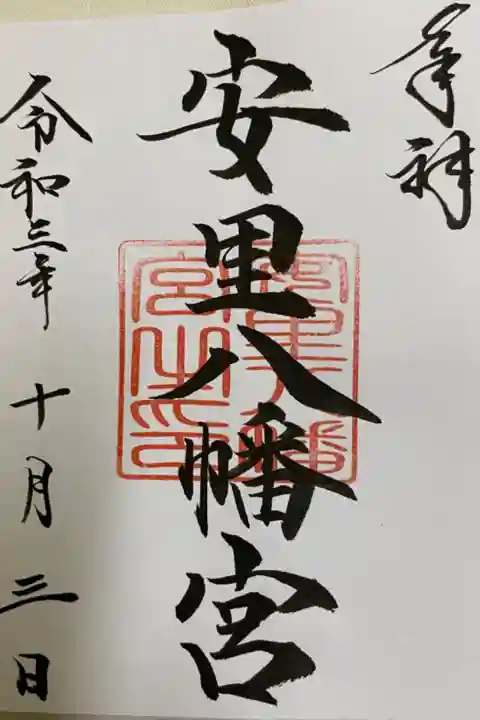 奉拝
安里八幡宮
安里八幡
宮之印
令和三年十月三日